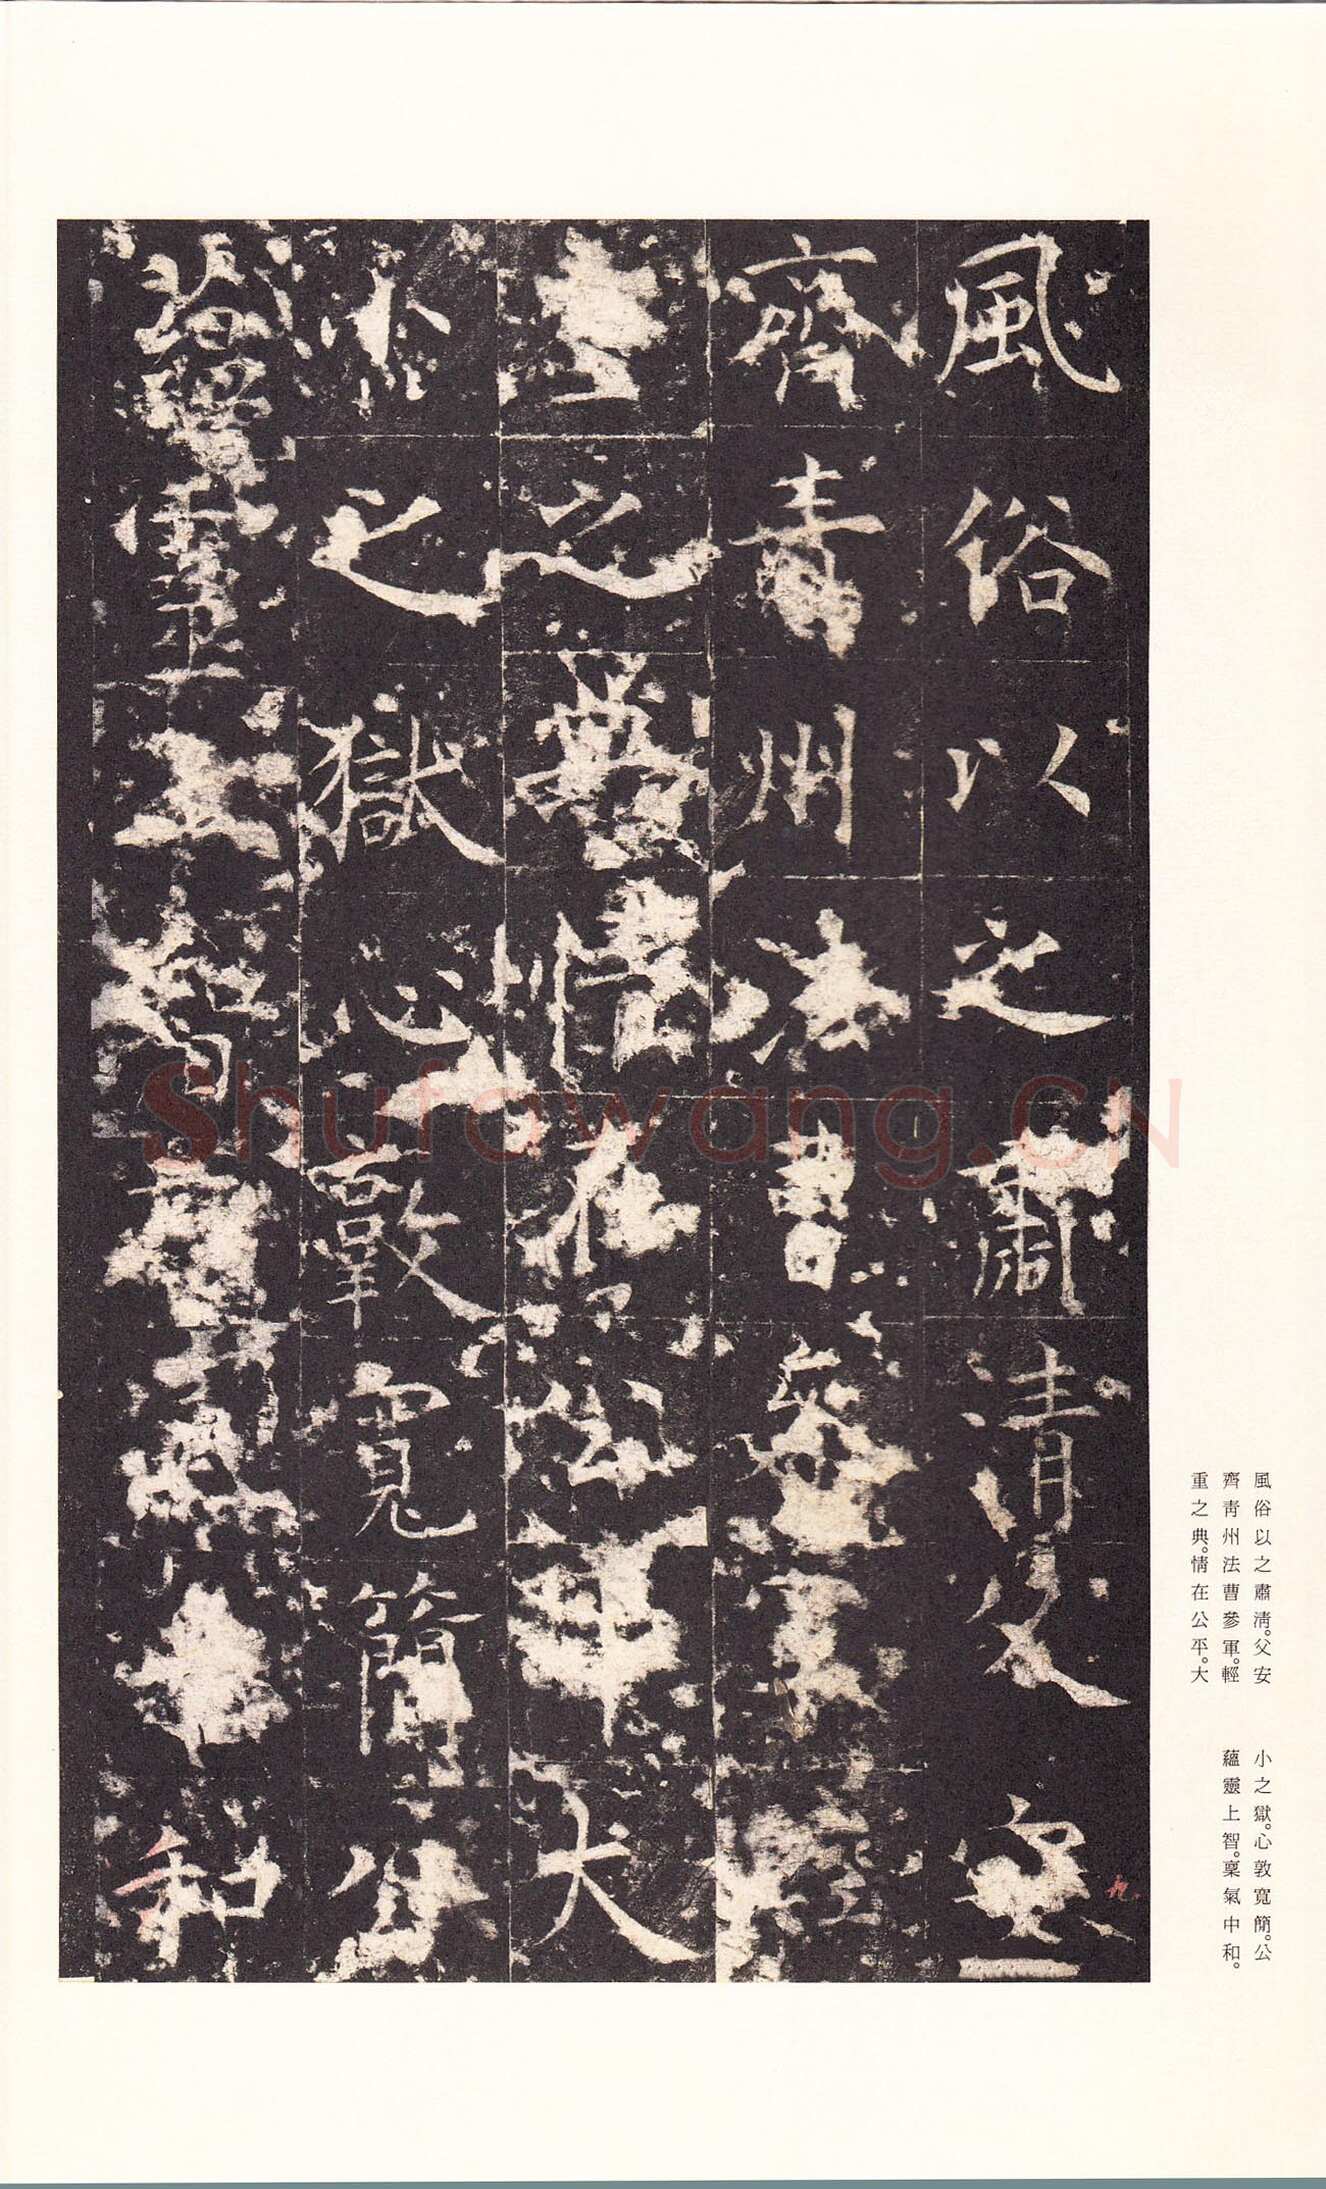 風俗以之肅清父安
齊青州法曹參軍輕
重之典情在公平大
小之獄心敦寬簡公
蘊靈上智稟氣中和
風俗以之肅清。父安
齊靑州法曹參軍。輕
重之典。情在公平。大
小之獄。心敦寬簡。公
蘊靈上智。稟氣中和。
Shufawang.CN